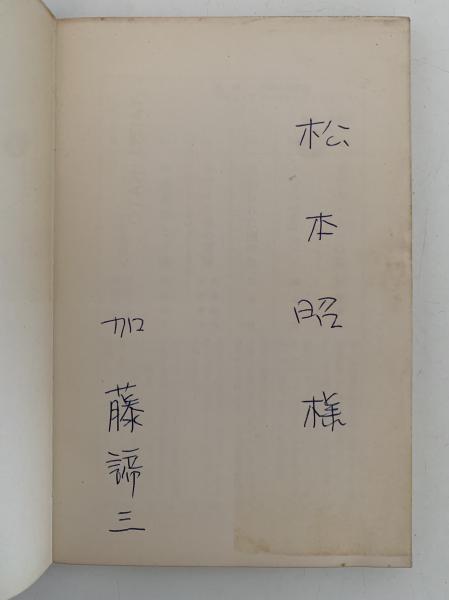 松本昭様
加藤諦三